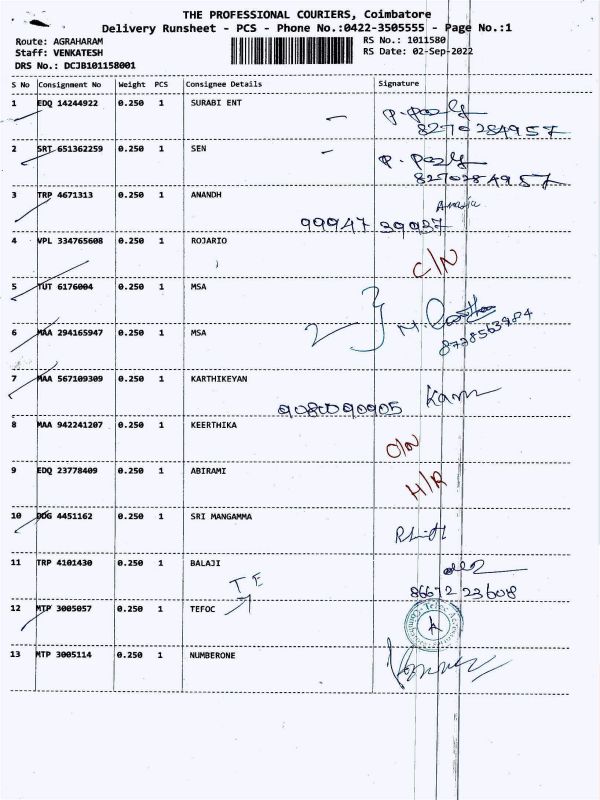 THE PROFESSIONAL COURIERS, Coimbatore
Delivery Runsheet - PCS - Phone No.:0422-3505555 - Page No.:1
Route: AGRAHARAM
Staff: VENKATESH
DRS No.: DCJB101158001
RS No.: 1011580
RS Date: 02-Sep-2022
S No Consignment No Weight PCS Consignee Details Signature
1 EDQ 14244922 0.250 1 SURABI ENT
8270284957
2 SRT 651362259 0.250 1 SEN
8270284957
3 TRP 4671313 0.250 1 ANANDH
99947 39937
4 VPL 334765608 0.250 1 ROJARIO
C/N
5 TUT 6176004 0.250 1 MSA
6 MAA 294165947 0.250 1 MSA
7 MAA 567109309 0.250 1 KARTHIKEYAN
9080090905
8 MAA 942241207 0.250 1 KEERTHIKA
O/N
9 EDQ 23778409 0.250 1 ABIRAMI
H/R
10 DDG 4451162 0.250 1 SRI MANGAMMA
11 TRP 4101430 0.250 1 BALAJI
86672 23608
TE
12 MTP 3005057 0.250 1 TEFOC
13 MTP 3005114 0.250 1 NUMBERONE